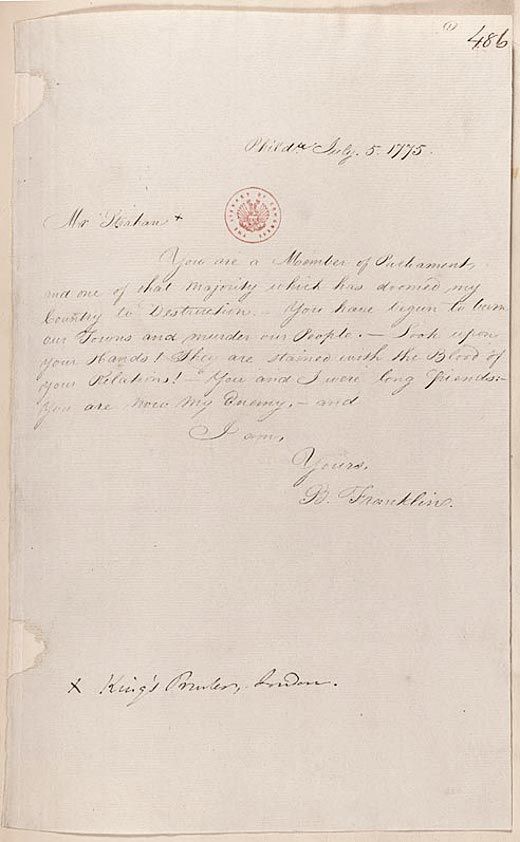 (1)
486
Philda July 5. 1775.
Mr Strahan +
You are a Member of Parliament,
and one of that Majority which has doomed my
Country to Destruction. – You have begun to burn
our Towns and murder our People. – Look upon
your Hands! They are stained with the Blood of
your Relations! – You and I were long friends:–
You are now my Enemy, – and
I am,
Yours,
B. Franklin.
THE LIBRARY OF CONGRESS
x King's Printer, London.